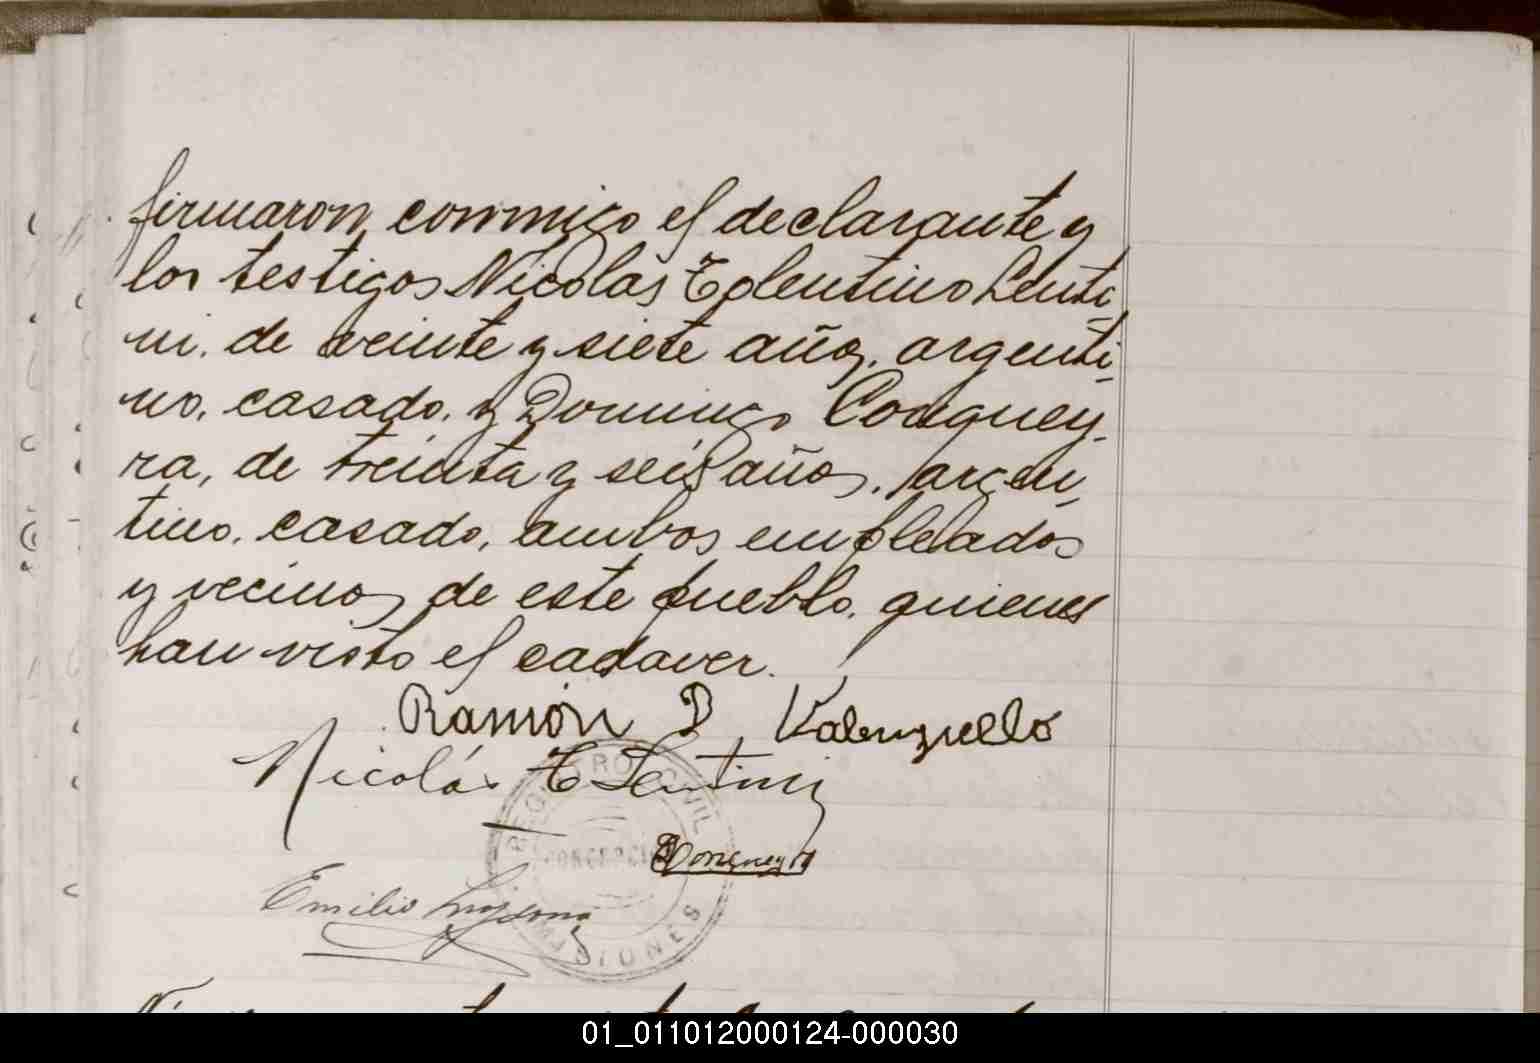 firmaron conmigo el declarante y
los testigos Nicolás Tolentino Lenti-
ni, de veinte y siete años, argenti-
no, casado, y Domingo Conguey-
ra, de treinta y seis años, argen-
tino, casado, ambos empleados
y vecinos de este pueblo, quienes
han visto el cadaver.
Ramón D Valenzuello
Nicolás T Lentini
REGISTRO CIVIL
CONCEPCIÓN
MISIONES
Emilio
01_011012000124-000030